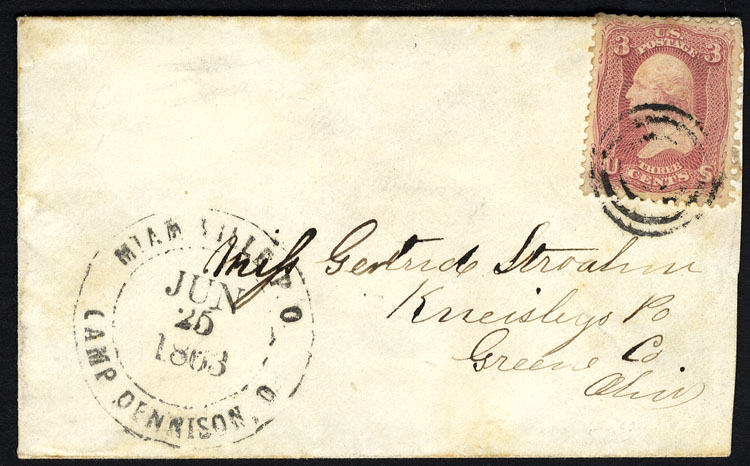 3 U.S. 3
POSTAGE
U S
THREE
CENTS
MIAMIVILLE P O
JUN
25
1863
CAMP DENNISON, O
Miss Gertrude
Kneisleys Po
Greene Co
Ohio